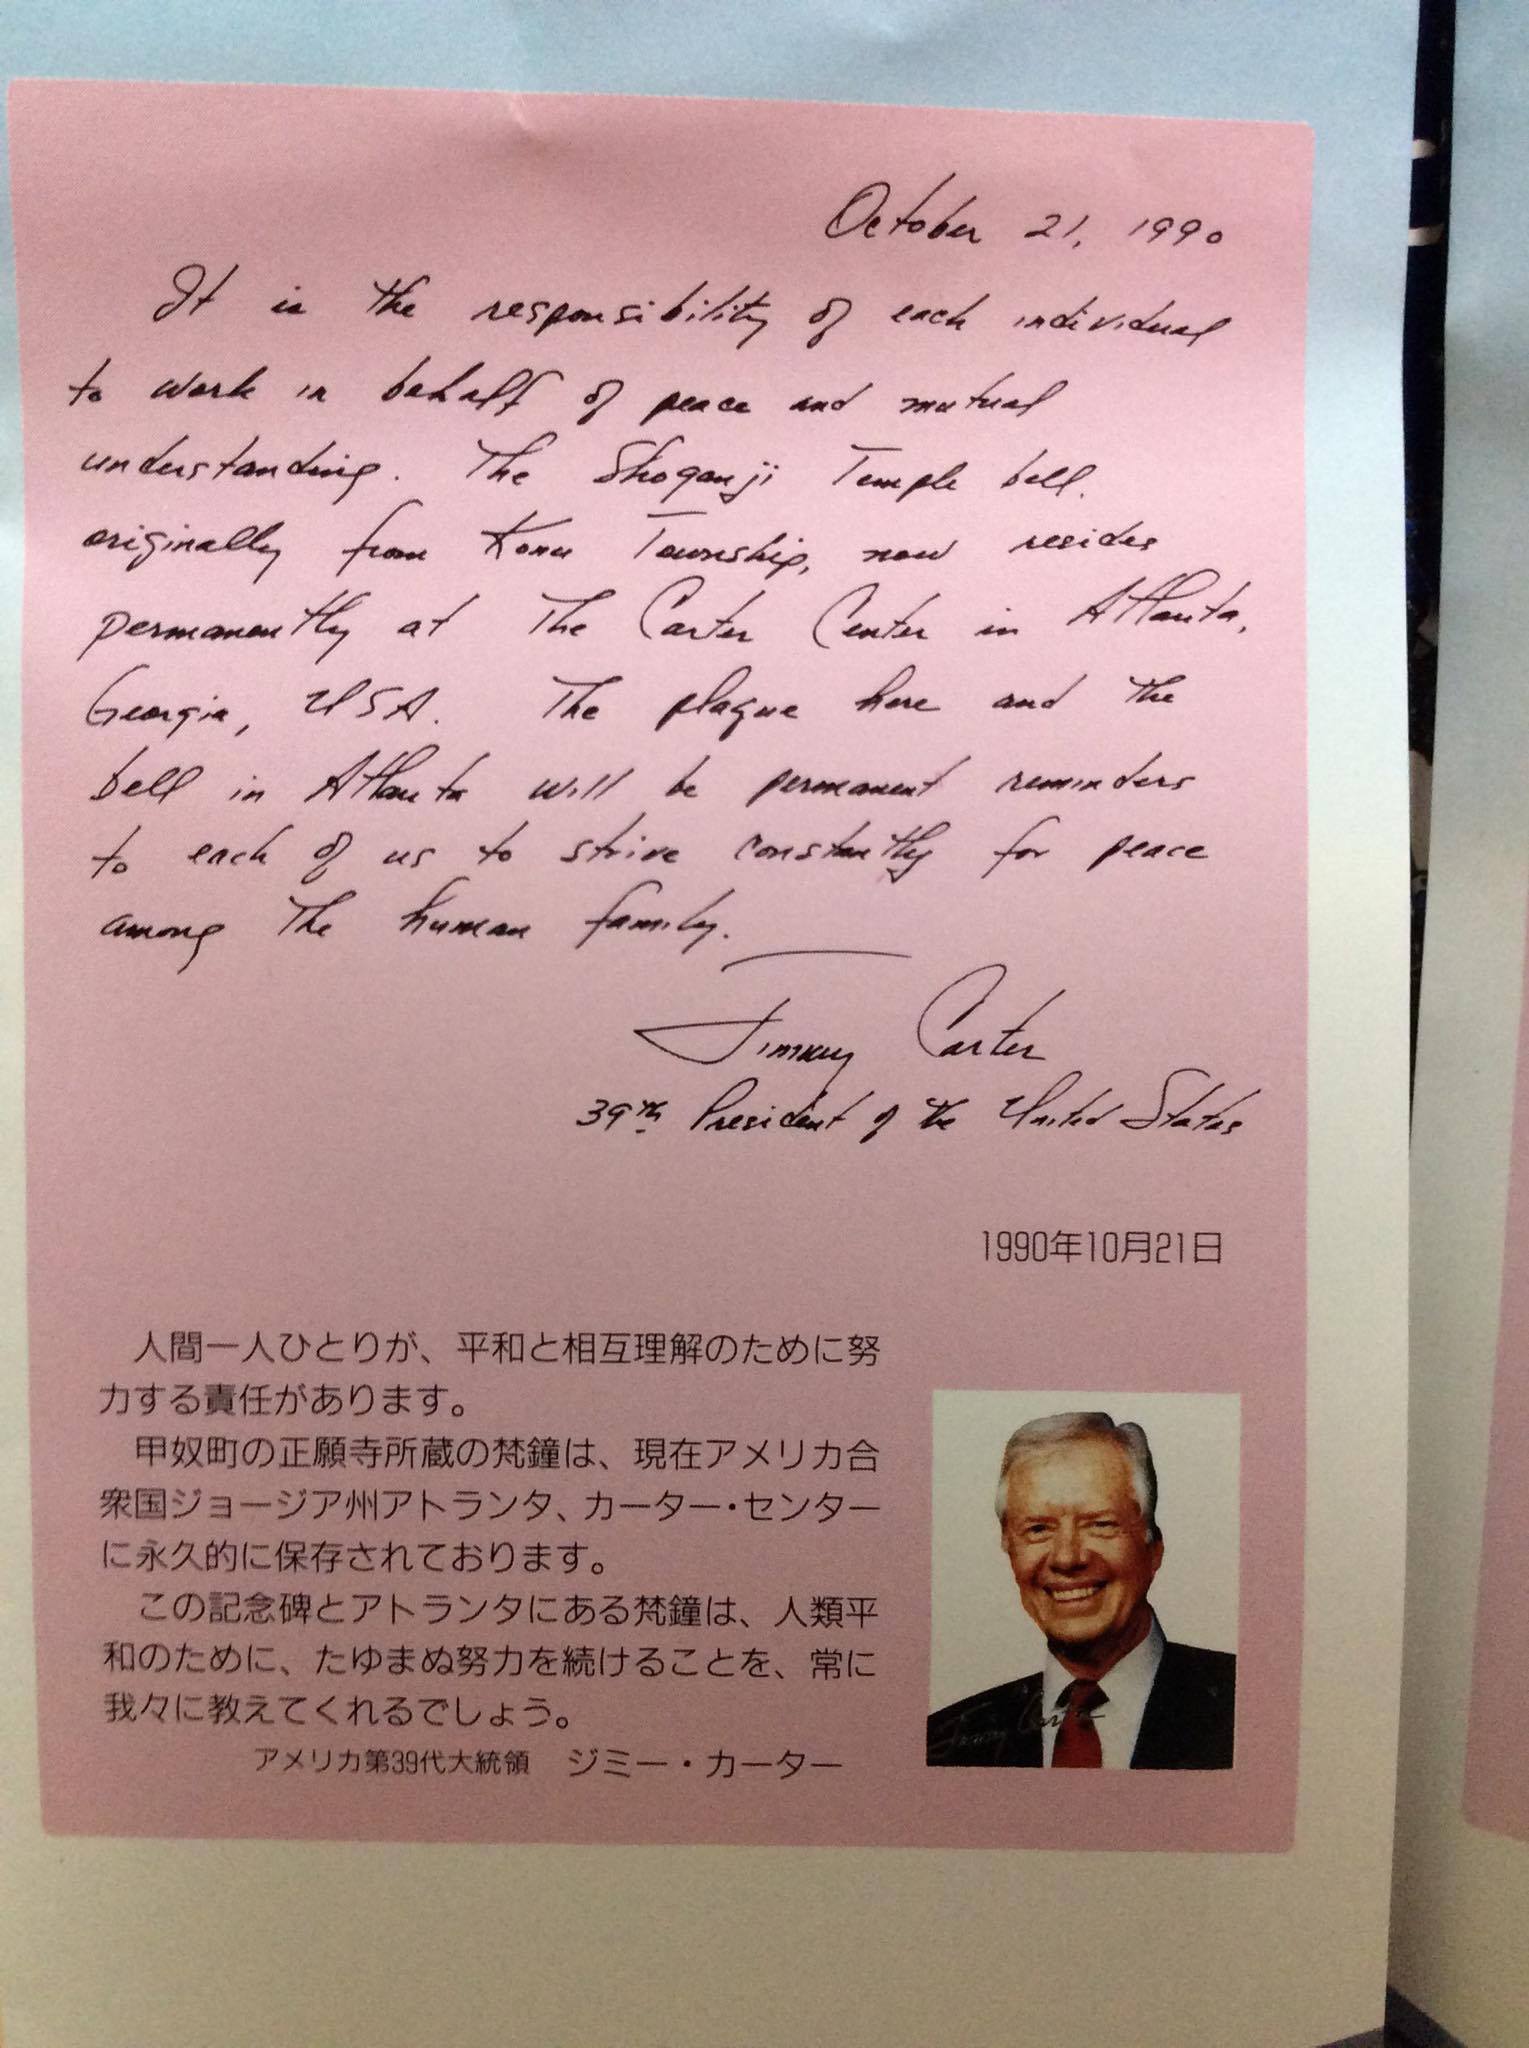 October 21, 1990
It is the responsibility of each individual
to work in behalf of peace and mutual
understanding. The Shoganji Temple bell,
originally from Konu Township, now resides
permanently at The Carter Center in Atlanta,
Georgia, USA. The plaque here and the
bell in Atlanta will be permanent reminders
to each of us to strive constantly for peace
among the human family.
Jimmy Carter
39th President of the United States
1990年10月21日
人間一人ひとりが、平和と相互理解のために努
力する責任があります。
甲奴町の正願寺所蔵の梵鐘は、現在アメリカ合
衆国ジョージア州アトランタ、カーター・センター
に永久的に保存されております。
この記念碑とアトランタにある梵鐘は、人類平
和のために、たゆまぬ努力を続けることを、常に
我々に教えてくれるでしょう。
アメリカ第39代大統領 ジミー・カーター
Jimmy Carter